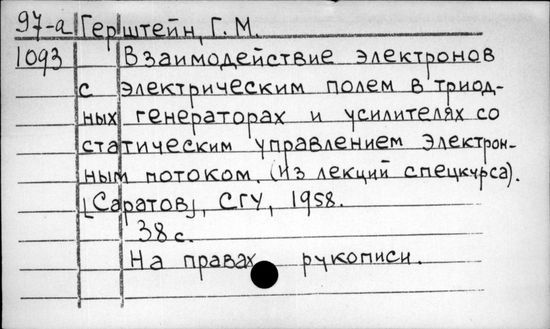 97-а Герштейн, Г. М.
1093 Взаимодействие электронов
с электрическим полем в триод-
ных генераторах и усилителях со
статическим управлением электрон-
ным потоком. (Из лекций спецкурса).
[Саратов], СГУ, 1958.
38 с.
На правах рукописи.